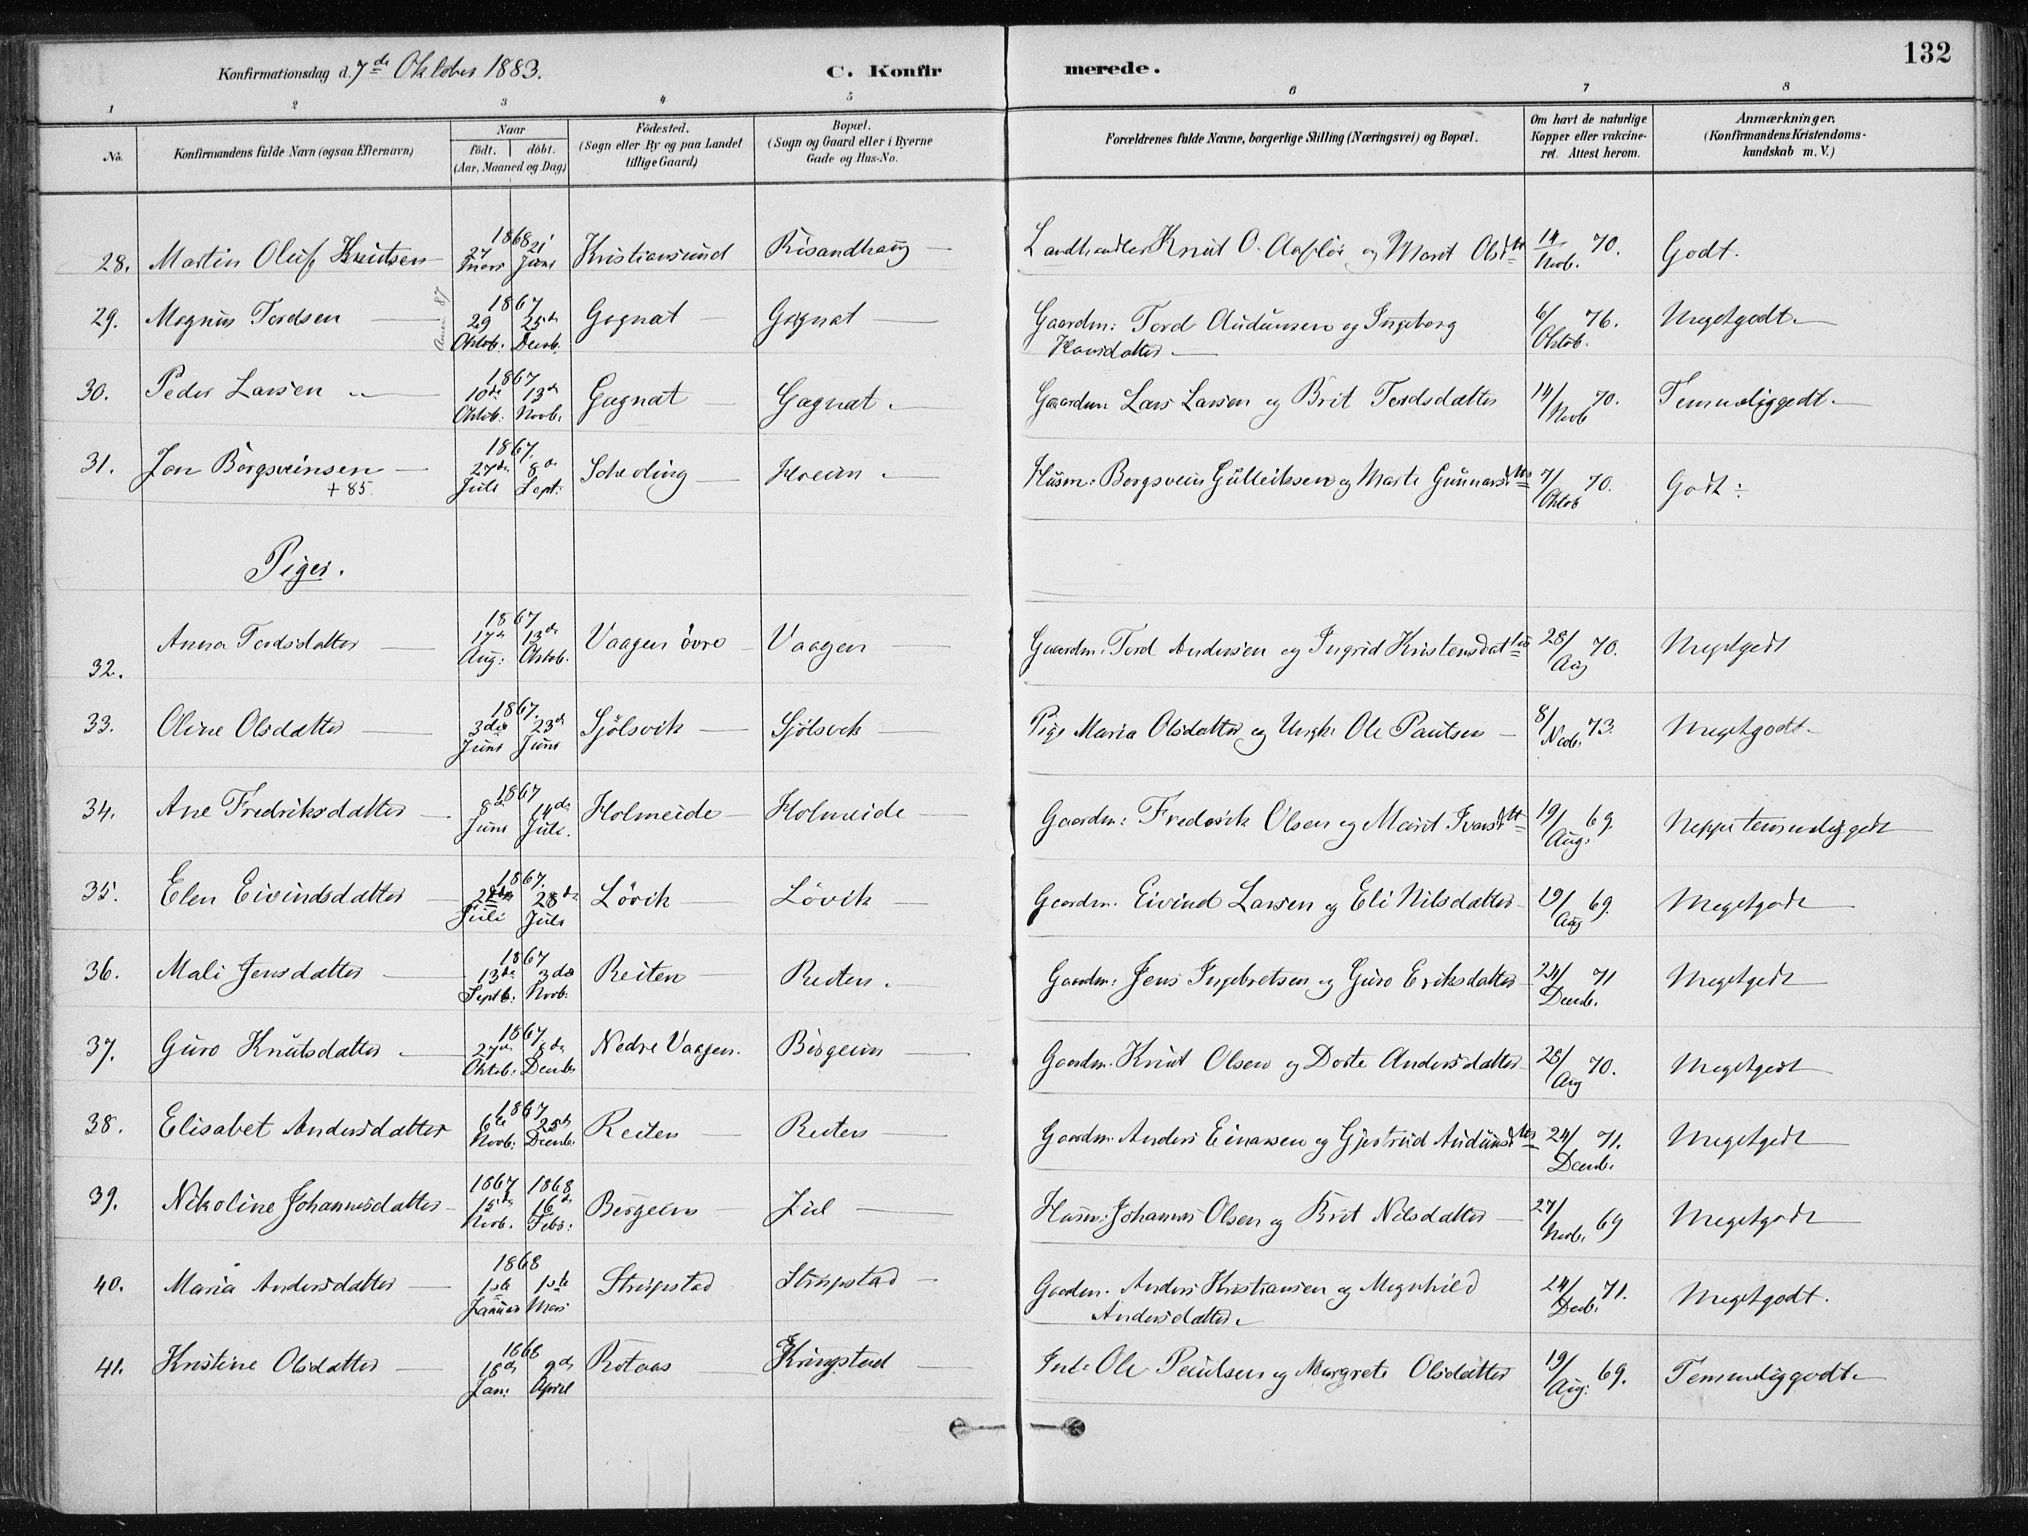 132
Konfirmationsdag d. 7de Oktober 1883.
C. Konfirmerede.
1 2 3 4 5 6 7 8
No. Konfirmandens fulde Navn (ogsaa Efternavn) Naar Födt. döbt. (Aar, Maaned og Dag) Födested. (Sogn eller By og paa Landet tillige Gaard) Bopæl. (Sogn og Gaard eller i Byerne Gade og Hus-No. Forældrenes fulde Navne, borgerlige Stilling (Næringsvei) og Bopæl. Om havt de naturlige Kopper eller vakcineret. Attest herom. Anmærkninger. (Konfirmandens Kristendomskundskab m. V.)
28. Martin Oluf Knutsen 1868 27 Mars 21 Juni Kristiansund Risandhaug Landhandler Knut O. Aafløi og Marit Olsdtr 14/Novb. 70. Godt.
29. Magnus Tordsen 1867 29 Oktob. 25de Decnb. Gagnat Gagnat Gaardm: Tord Audunsen og Ingeborg Hansdatter 6/Oktob. 76. Megetgodt
30. Peder Larsen 1867 10de Oktob. 13de Novb. Gagnat Gagnat Gaardm. Lars Larsen og Brit Tordsdatter 14/Novb 70. Temmeliggodt.
31. Jon Borgsveinsen +85. 1867. 27de Juli 8de Sept: Hoem Husm: Borgsvein Gulleiksen og Marte Gunnarsdtr 7/Oktob 70. Godt:
Piger.
32. Anna Tordsdatter 1867 17de Aug: 13de Oktob. Vaagen övre Vaagen Gaardm. Tord Andersen og Ingrid Kristensdatter 28/Aug 70. Megetgodt
33. Oline Olsdatter 1867. 3die Juni 23de Juni Sjölsvik Sjölsvik Pige Maria Olsdatter og Ungk. Ole Paulsen 8/Novb. 73. Megetgodt
34. Ane Fredriksdatter 1867 8de Juni 14de Juli. Holmeide Holmeide Gaardm: Frederik Olsen og Marit Ivarsdtr 19/Aug. 69. Neppe temmeliggodt
35. Elen Eivindsdatter 1867. Juli 28de Juli Lövik Lövik Gaardm. Eivind Larsen og Eli Nilsdatter 19/Aug 69. Megetgodt
36. Mali Jensdatter 1867 13de Septb. 3die Novb. Reiten Reiten Gaardm: Jens Ingebretsen og Guro Eriksdatter 24/Decmb. 71 Megetgodt
37. Guro Knutsdatter 1867 27de Oktob. 8de Decmb. Nedre Vaagen. Bergeim Gaardm. Knut Olsen og Dorte Andersdatter 28/Aug 70. Megetgodt
38. Elisabet Andersdatter 1867 6te Novb. 25de Decmb. Reiten Reiten Gaardm. Anders Einarsen og Gjertrud Audunsdtr 24/Decmb. 71. Megetgodt
39. Nikoline Johannesdatter 1867 15de Novb. 1868 16de Febr: Bergeim Husm: Johannes Olsen og Brit Nilsdatter 27/Novb. 69 Megetgodt
40. Maria Andersdatter 1868 1ste Januar 1ste Mars Strupstad Strupstad Gaardm. Anders Kristiansen og Magnhild Andersdatter. 24/Decb. 71. Megetgodt.
41. Kristine Olsdatter 1868 18de Jan: 9de April Rotaas Kringstad Ind: Ole Paulsen og Margrete Olsdatter 19/Aug. 69. Temmeliggodt